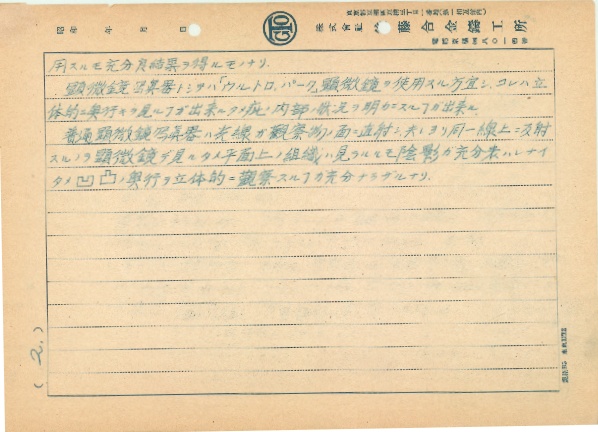 昭 年 月 日
株式會社 藤合金鑄工所
用スルモ充分良結果ヲ得ルモノナリ.
顕微鏡写眞器トシテハ「ウルトロ,パーク」顕微鏡ヲ使用スル方宜シ,コレハ立
体的ニ奥行キヲ見ルヿガ出来ルタメ疵ノ内部ノ状況ヲ明カニスルヿガ出来ル
普通顕微鏡写眞器ハ光線ガ観察物ノ面ニ直射シ,夫レヨリ同一線上ニ反射
スルノヲ顕微鏡デ見ルタメ平面上ノ組織ハ見ラルルモ陰影ガ充分表ハレナイ
タメ凹凸ノ奥行ヲ立体的ニ観察スルヿガ充分ナラザルナリ.
(2.)